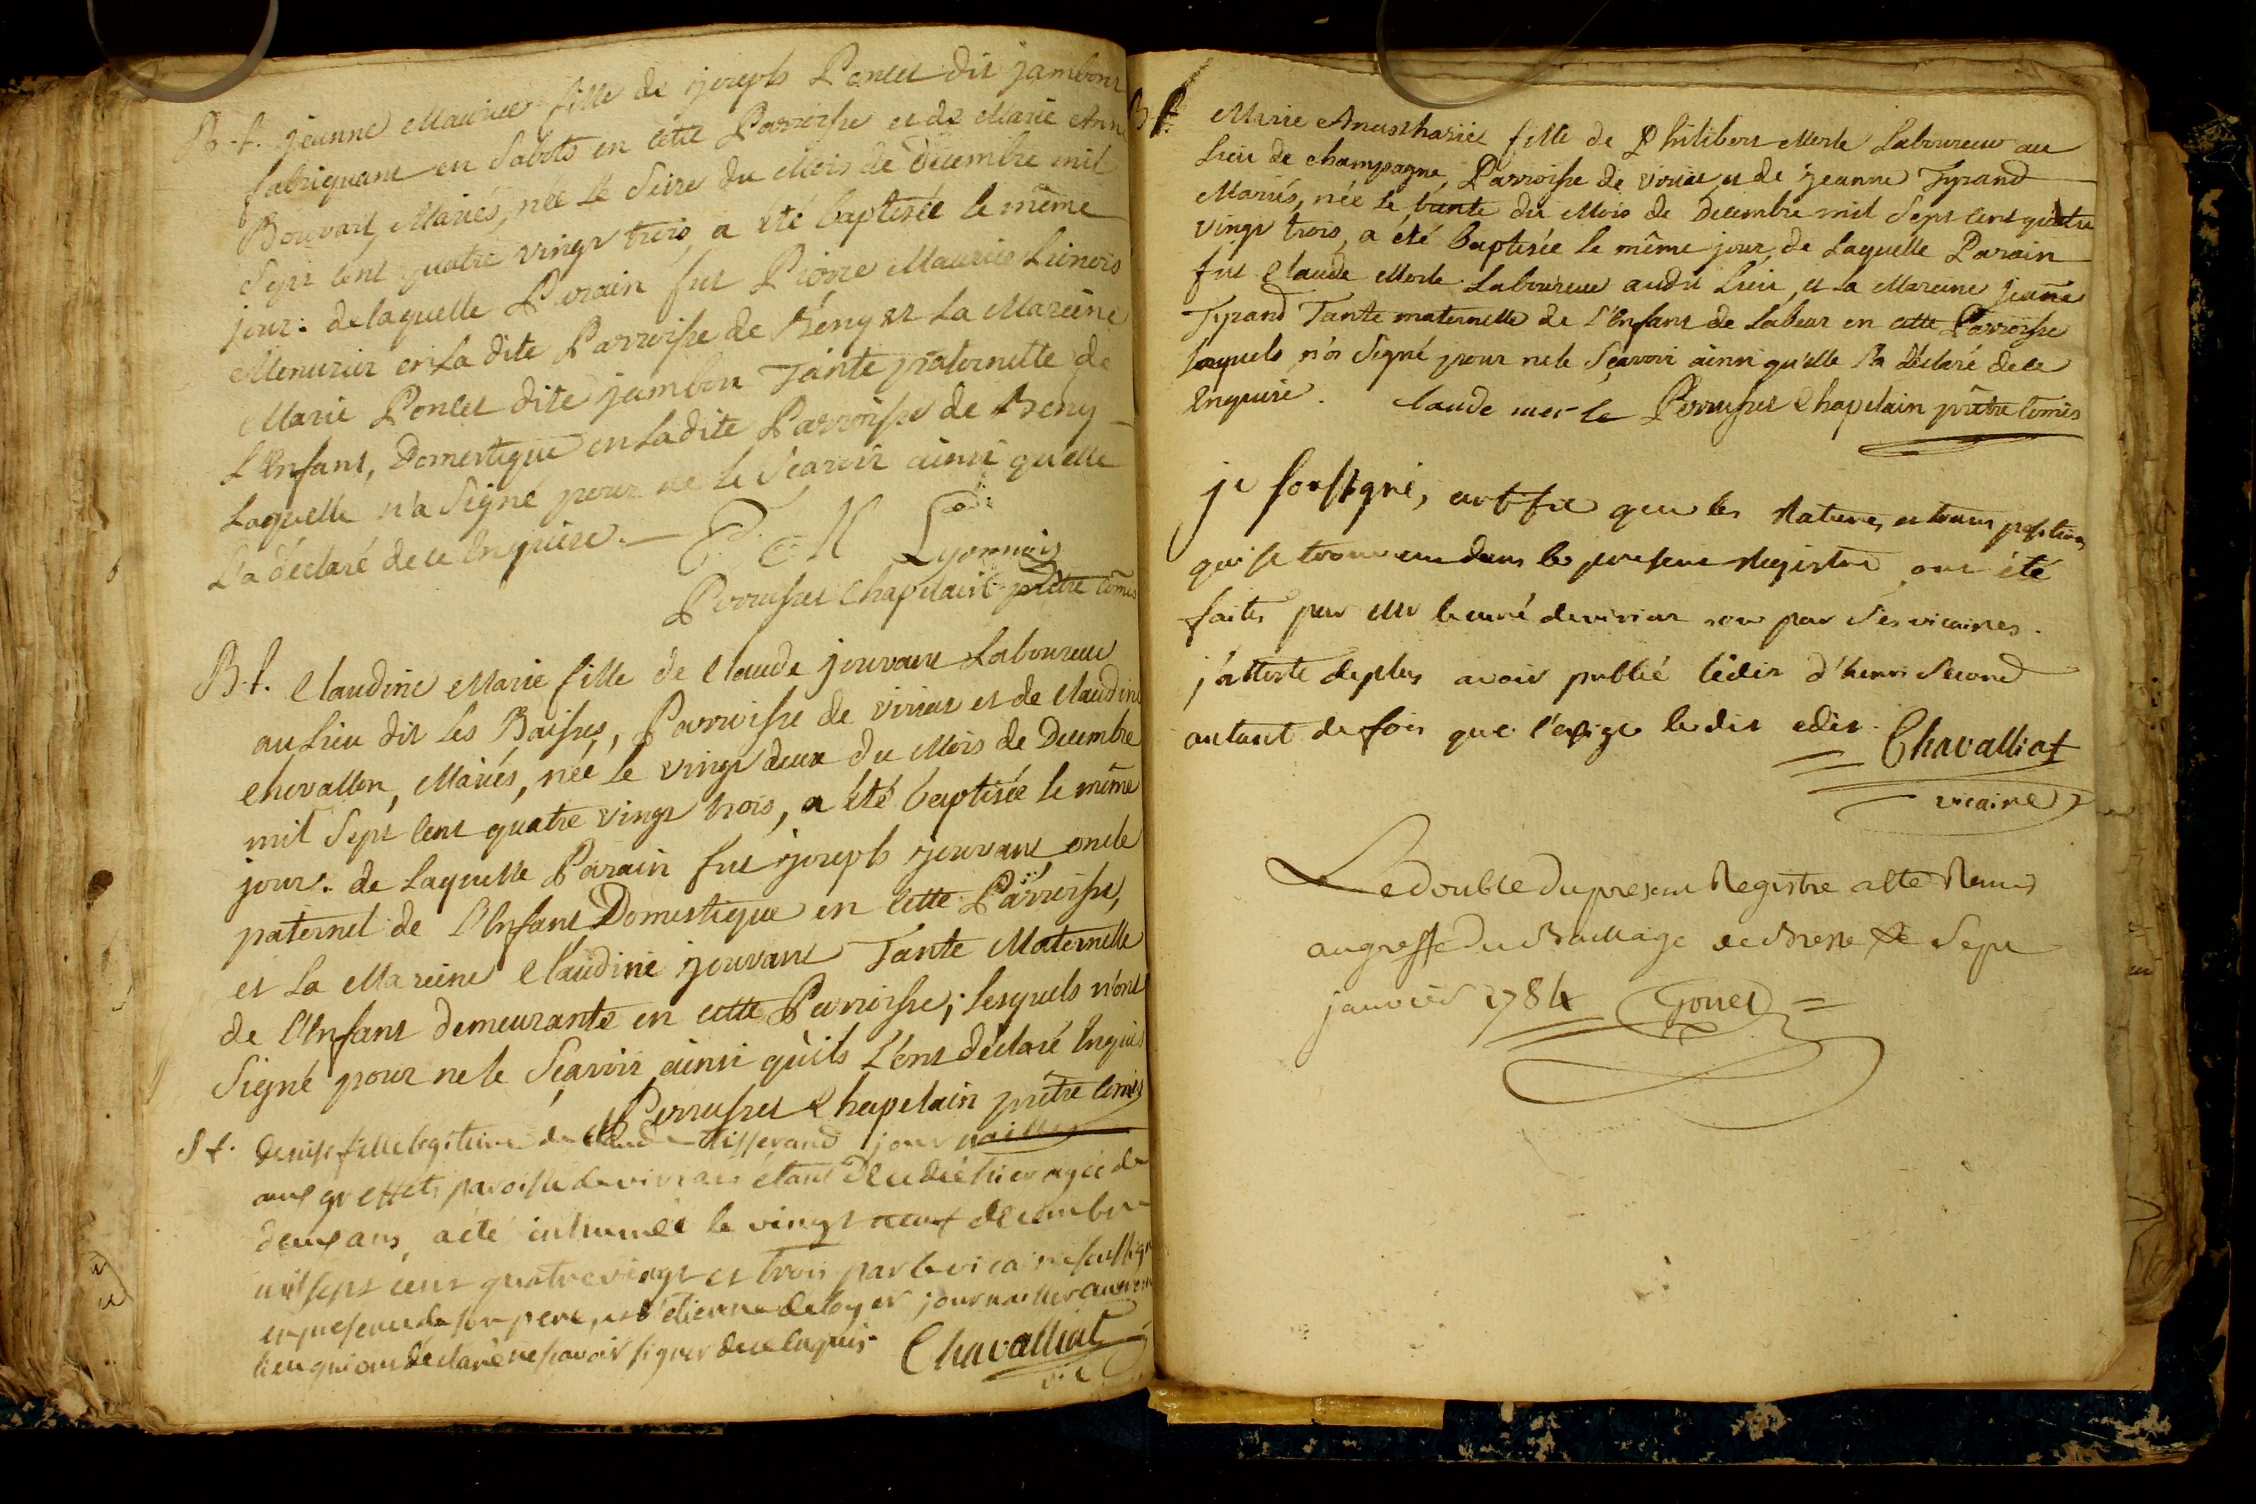 B.f. jeanne Maurice fille de joseph Poncet dit jambon
fabriquant en Sabots en cette Parroisse et de Marie Anne
Bouvard Mariés, née le Seize du Mois de Decembre mil
Sept Cent quatre vingt trois, a été baptisée le même
jour: de laquelle Parain fut Pierre Maurice Lionois
Menusier en La dite Parroisse de Beny et La Mareine
Marie Poncet dite jambon Tante paternelle de
L'Enfant, Domestique en Ladite Parroisse de Beny
Laquelle n'a Signé pour ne le Sçavoir ainsi qu'elle
L'a déclaré de ce Enquise.
Lyonnois
Perrusset Chapelain prêtre Comis
B.f. Claudine Marie fille de Claude jouvant Laboureur
au Lieu dit Les Baisses, Parroisse de viriat et de Claudine
Chevallon, Mariés, née le vingt deux du Mois de Decembre
mil Sept Cent quatre vingt trois, a été baptisée le même
jour. de Laquelle Parain fut joseph jouvant oncle
paternel de L'Enfant Domestique en Cette Parroisse,
et La Mareine Claudine jouvant Tante Maternelle
de l'Enfant demeurante en cette Parroisse; Lesquels n'ont
Signé pour ne le Sçavoir ainsi qu'ils L'ont déclaré Enquis
Perrusset Chapelain prêtre Comis
S f. Denise fille legitime de Claude tisserand journailler
aux greffets paroisse de viriat étant decedée hier agée de
deux ans, a été inhumée le vingt neuf decembre
mil sept cent quatre vingt et trois par le vicaire soussigné
en presence de son pere, et d'etienne deloger journailler au
lieu qui ont déclaré ne savoir signer de ce enquis
Chavalliat
vic
B.f. Marie Anasthasie fille de Philibert Merle Laboureur au
Lieu de champagne, Parroisse de viriat et de jeanne Tyrand
Mariés, née le trente du Mois de Decembre mil Sept Cent quatre
vingt trois, a été baptisée le même jour, de Laquelle Parain
fut Claude Merle Laboureur audit Lieu, et la Mareine jeanne
Tyrand Tante maternelle de l'Enfant de Labeur en cette Parroisse
laquels n'a Signé pour ne le Sçavoir ainsi qu'elle l'a déclaré de ce
Enquise. Claude merle Perrusset Chapelain prêtre Comis
je soussigné, certifie que les ratures et transpositions
qui se trouvent dans le present Registre ont été
faites par Mr le curé de viriat ou par Ses vicaires.
j'atteste de plus avoir publié l'édit d'henri Second
autant de fois que l'exige le dit edit.
Chavalliat
vicaire
Le double du present Registre a été Remis
au greffe du Bailliage de Bresse Le Sept
janvier 1784 Gonet